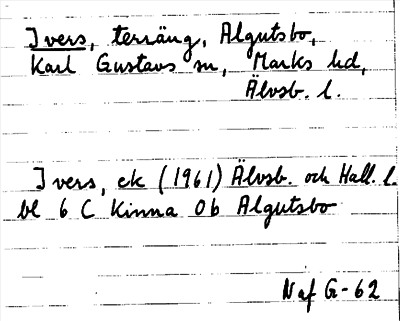 Ivers, terräng, Algutsbo,
Karl Gustavs sn, Marks hd,
Älvsb. l.
Ivers, ek (1961) Älvsb. och Hall. l.
bl 6 C Kinna 0b Algutsbo
Naf G-62